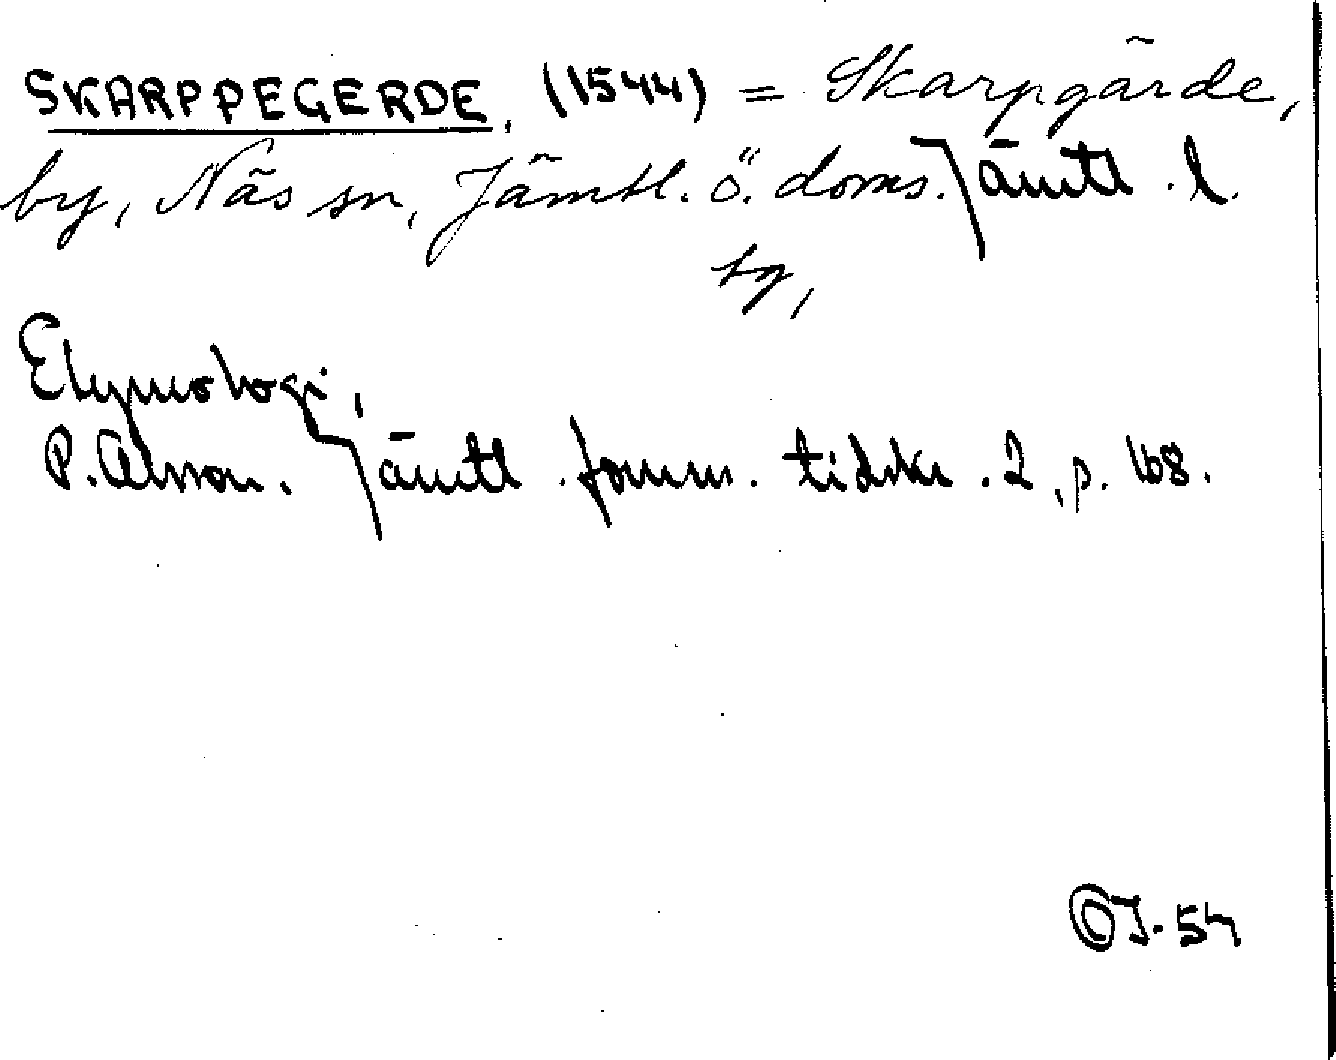 SKARPPEGERDE, (1544) = Skarpgärde,
by, Näs sn, Jämtl. ö. doms. Jämtl. l.
tg,
Etymologi,
P. Olsson. Jämtl. fornm. tidskr. 2, p. 168.
OJ-54